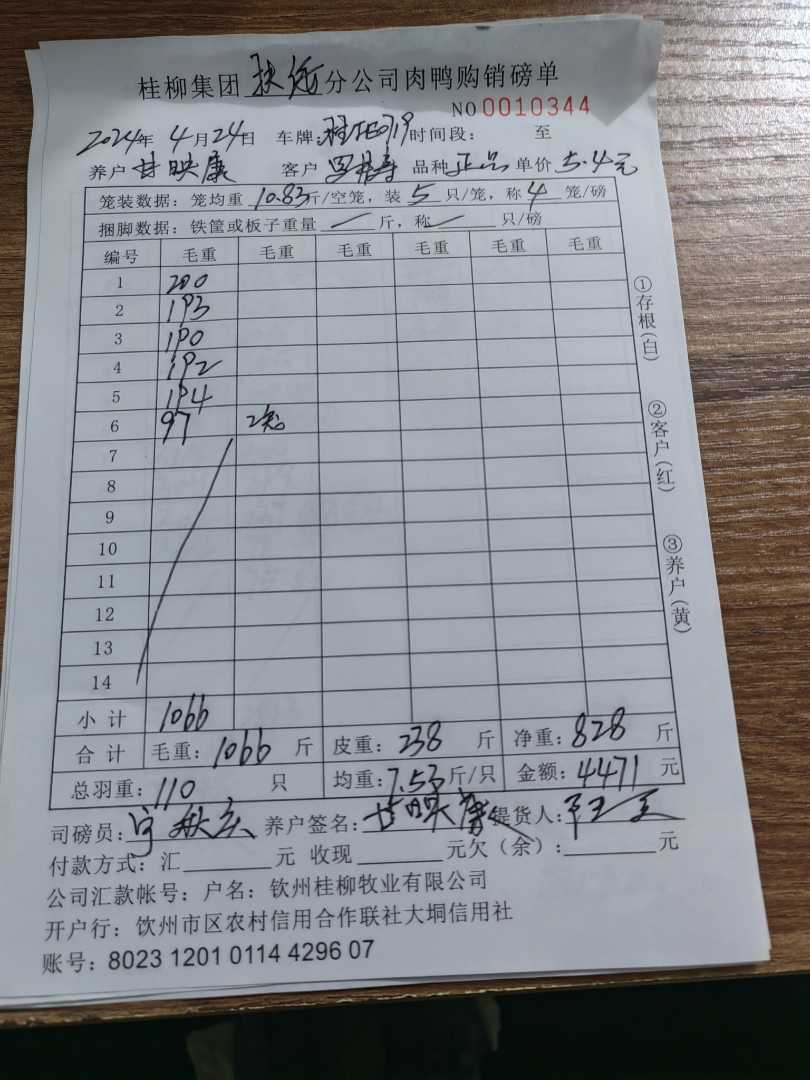 桂柳集团扶绥分公司肉鸭购销磅单
NO 0010344
2024年 4月24日 车牌: 时间段: 至
养户 甘映康 客户 品种 正品 单价 5.4元
笼装数据: 笼均重 10.83斤/空笼, 装 5 只/笼, 称 4 笼/磅
捆脚数据: 铁筐或板子重量 / 斤, 称 / 只/磅
编号 毛重 毛重 毛重 毛重 毛重 毛重
1 200
2 193
3 190
4 192
5 194
6 97 2笼
7
8
9
10
11
12
13
14
小计 1066
合计 毛重: 1066 斤 皮重: 238 斤 净重: 828 斤
总羽重: 110 只 均重: 7.53斤/只 金额: 4471 元
司磅员: 养户签名: 甘映康 提货人:
付款方式: 汇 元 收现 元欠(余): 元
公司汇款帐号: 户名: 钦州桂柳牧业有限公司
开户行: 钦州市区农村信用合作联社大垌信用社
账号: 8023 1201 0114 4296 07
①存根(白)
②客户(红)
③养户(黄)